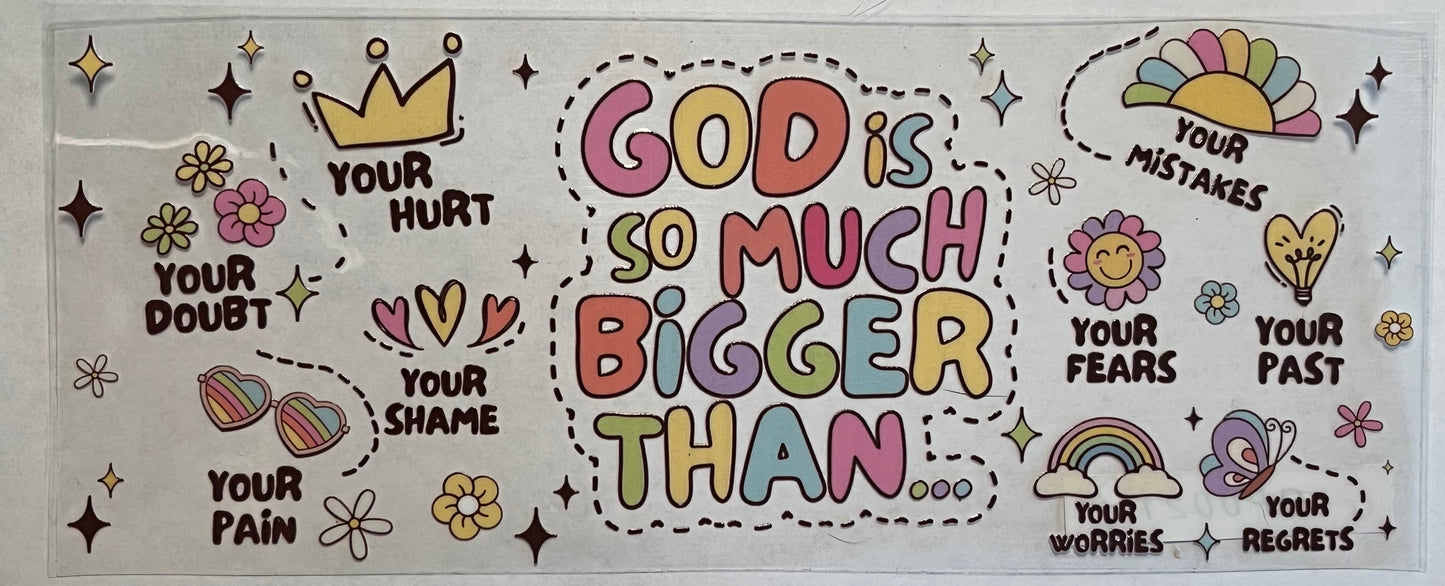 YOUR
HURT
YOUR
DOUBT
YOUR
SHAME
YOUR
PAiN
GOD iS
SO MUCH
BiGGER
THAN...
YOUR
MiSTAKES
YOUR
FEARS
YOUR
PAST
YOUR
WORRiES
YOUR
REGRETS